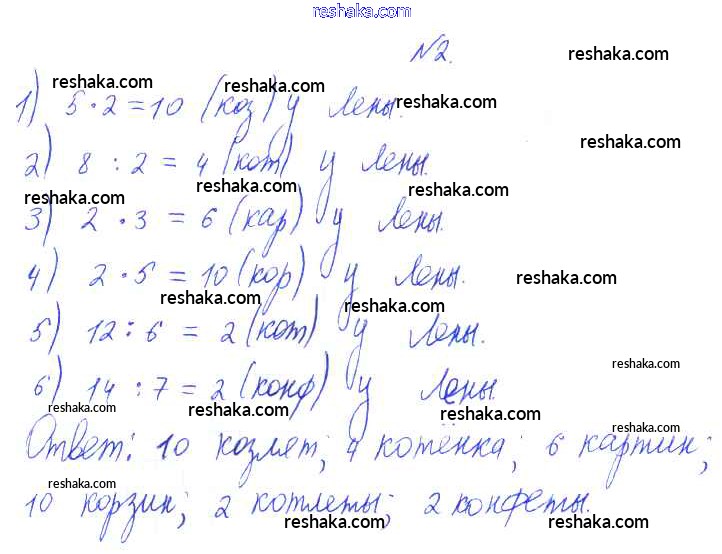 reshaka.com
№2.
reshaka.com
reshaka.com
reshaka.com
reshaka.com
1) 5·2=10 (коз) у Лены.
reshaka.com
2) 8 : 2 = 4 (кот) у Лены.
reshaka.com
reshaka.com
reshaka.com
3) 2 · 3 = 6 (кар) у Лены.
4) 2 · 5 = 10 (кор) у Лены.
reshaka.com
reshaka.com
reshaka.com
5) 12 : 6 = 2 (кот) у Лены.
reshaka.com
6) 14 : 7 = 2 (конф) у Лены.
reshaka.com
reshaka.com
reshaka.com
Ответ: 10 козлят; 4 котёнка; 6 картин;
reshaka.com
reshaka.com
10 корзин; 2 котлеты; 2 конфеты.
reshaka.com
reshaka.com